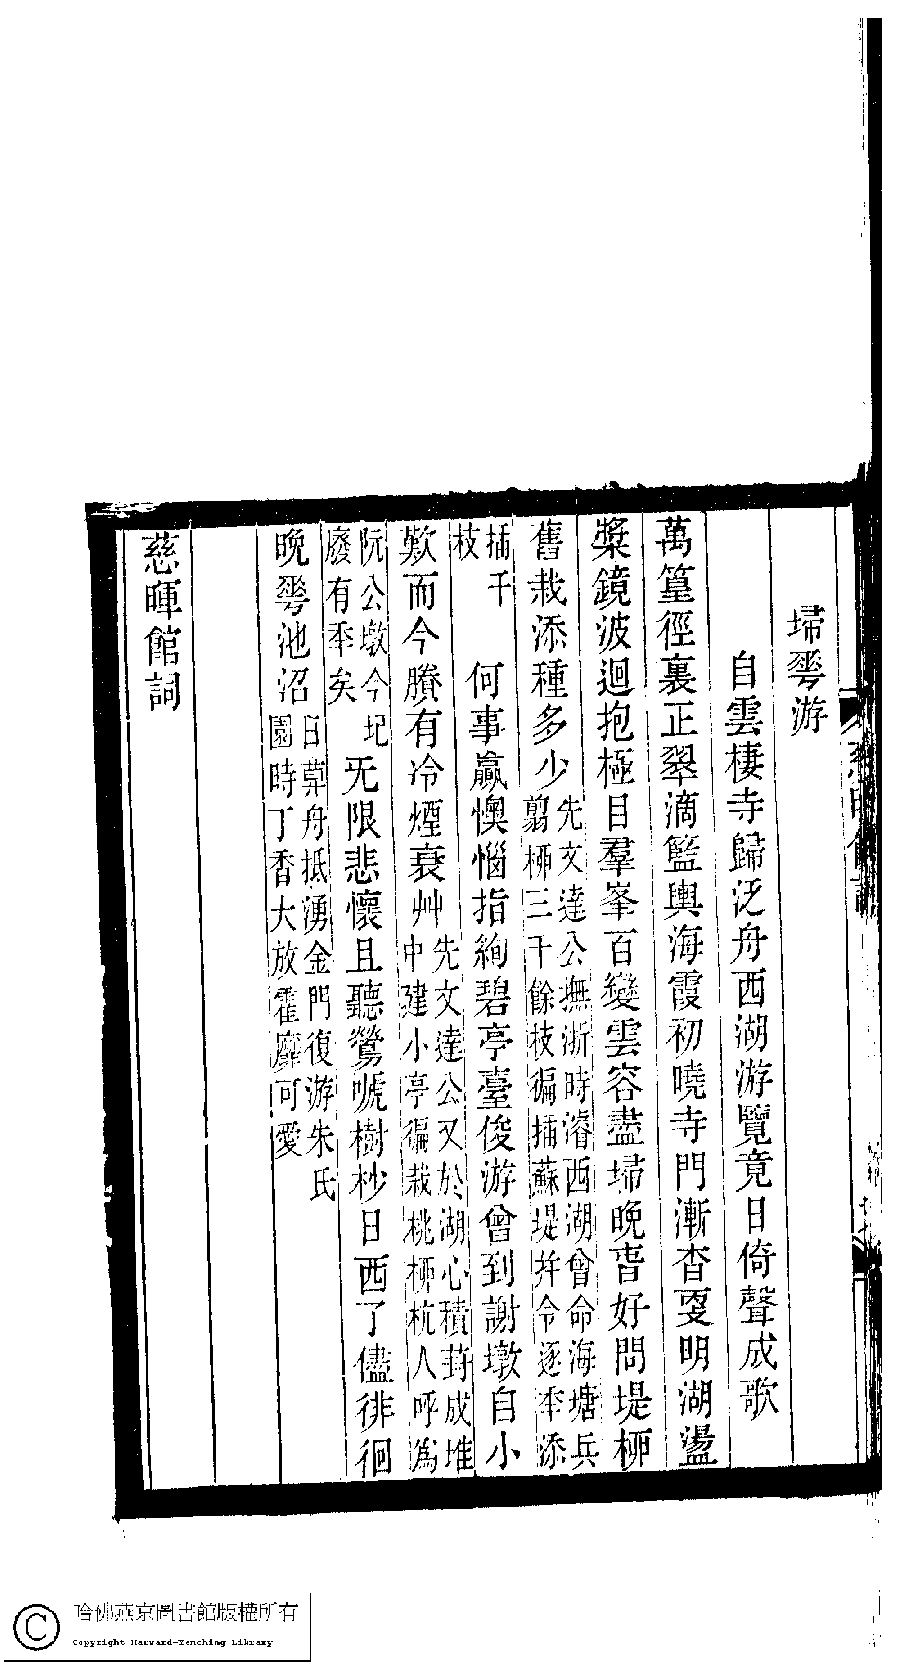 埽䔢游
自雲棲寺歸泛舟西湖游覽竟日倚聲成歌
萬篁徑裏正翠滴籃輿海霞初曉寺門漸杳叓明湖盪
槳鏡波迴抱極目羣峯百變雲容盡埽晩旾好問堤桺
舊栽添種多少先文達公撫浙時濬西湖曾命海塘兵
翦桺三千餘枝徧插蘇堤幷令逐秊添
插千
枝
何事贏懊惱指絢碧亭臺俊游曾到謝墩自小
歎而今賸有冷煙衰艸先文達公又於湖心積葑成堆
中建小亭徧栽桃桺杭人呼爲
阮公墩今圮
廢有秊矣
无限悲懷且聽鶯嗁樹杪日西了儘徘徊
晩䔢池沼日莫舟抵湧金門復游朱氏
園時丁香大放霍靡可愛
慈暉館詞
慈暉館詞
哈佛燕京圖書館版權所有
Copyright Harvard-Yenching Library